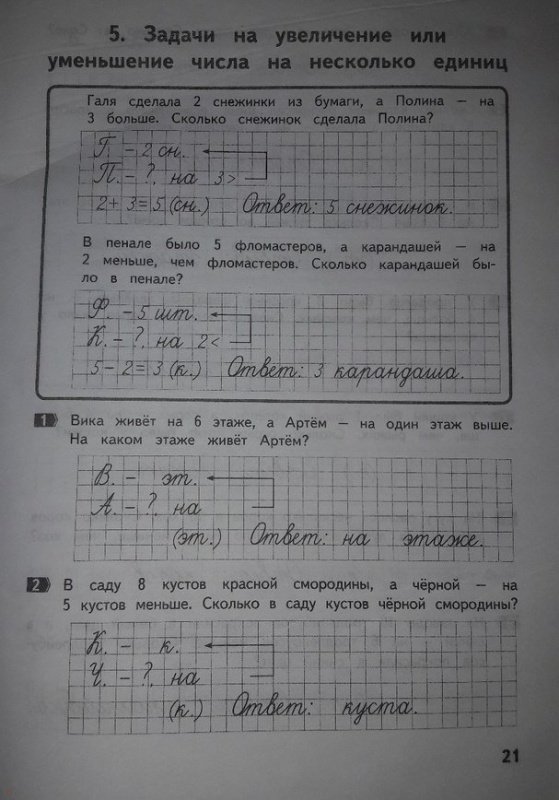 5. Задачи на увеличение или
уменьшение числа на несколько единиц
Галя сделала 2 снежинки из бумаги, а Полина — на
3 больше. Сколько снежинок сделала Полина?
Г. – 2 сн.
П. – ?, на 3>
2 + 3 = 5 (сн.) Ответ: 5 снежинок.
В пенале было 5 фломастеров, а карандашей — на
2 меньше, чем фломастеров. Сколько карандашей бы-
ло в пенале?
Ф. – 5 шт.
К. – ?, на 2<
5 – 2 = 3 (к.) Ответ: 3 карандаша.
1 Вика живёт на 6 этаже, а Артём — на один этаж выше.
На каком этаже живёт Артём?
В. – эт.
А. – ?, на
(эт.) Ответ: на этаже.
2 В саду 8 кустов красной смородины, а чёрной — на
5 кустов меньше. Сколько в саду кустов чёрной смородины?
К. – к.
Ч. – ?, на
(к.) Ответ: куста.
21